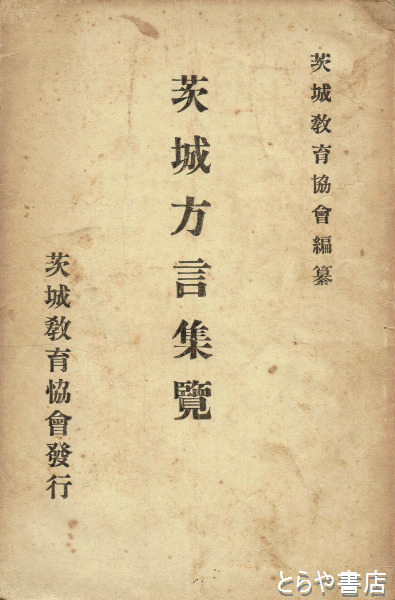 茨城教育協會編纂
茨城方言集覽
茨城教育協會發行
とらや書店